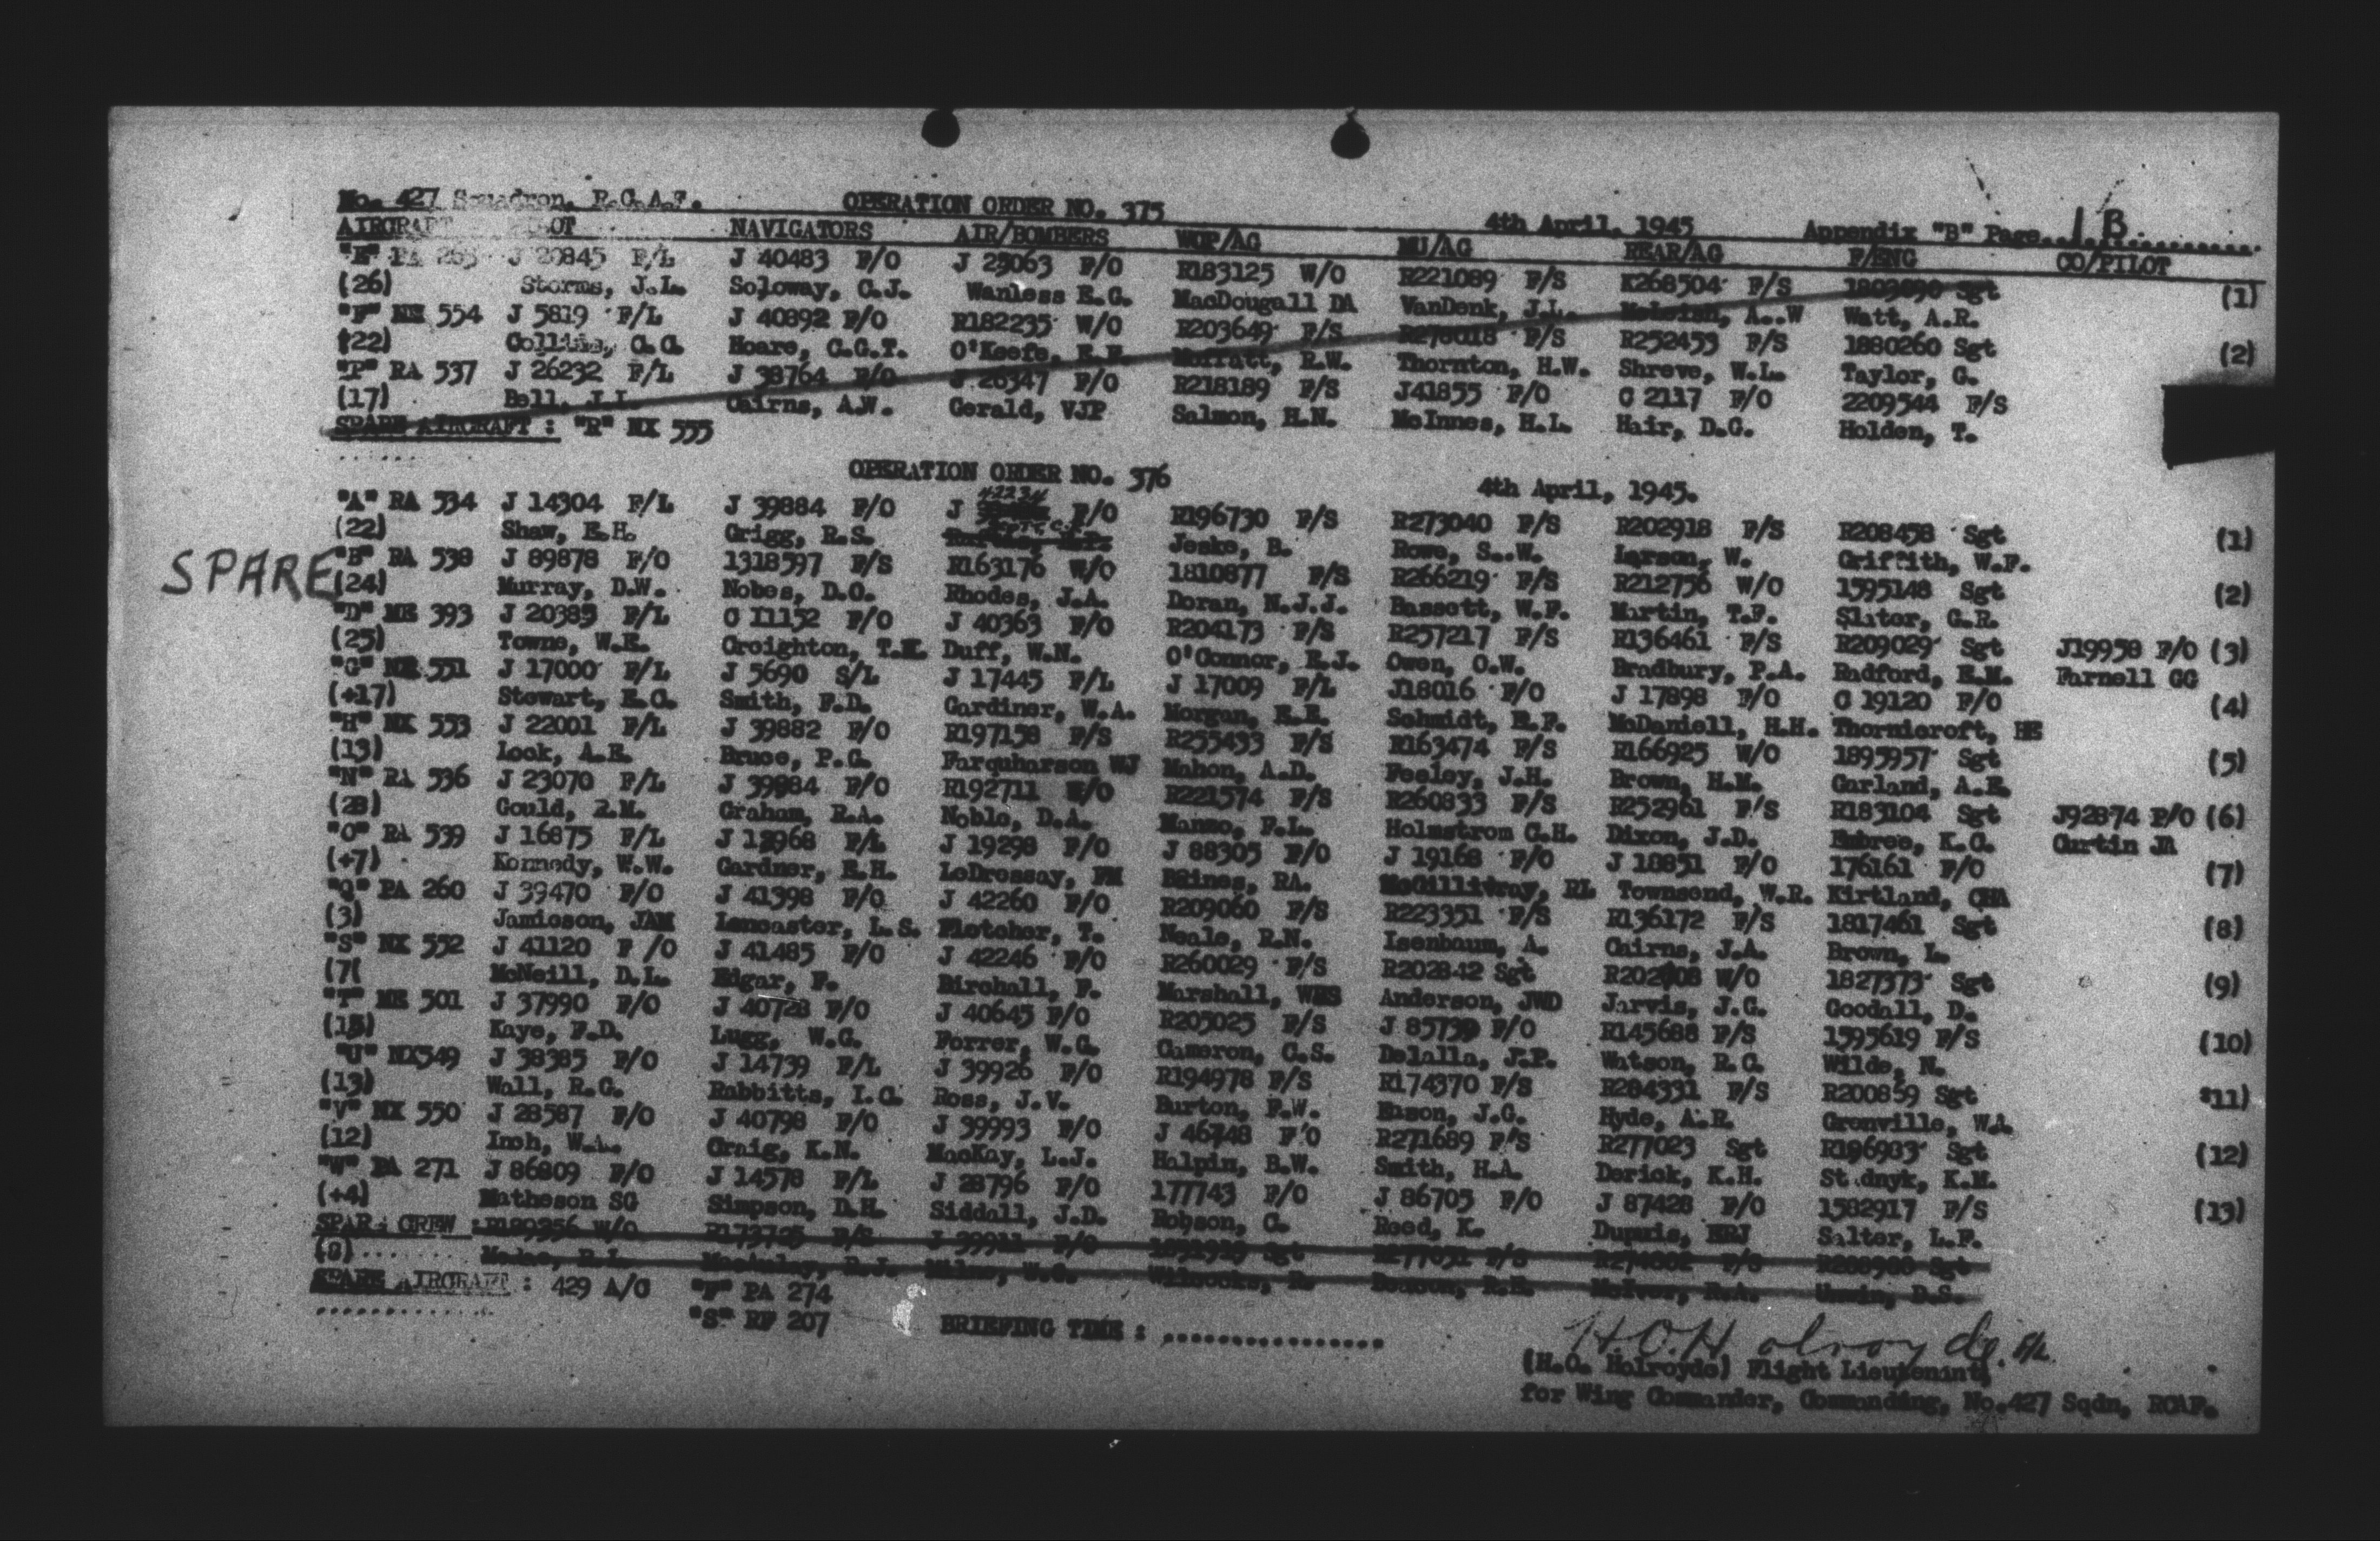 No. 427 Squadron, R.C.A.F. OPERATION ORDER NO. 375 4th April, 1945 Appendix "B" Page....1 B............
AIRCRAFT PILOT NAVIGATORS AIR/BOMBERS WOP/AG MU/AG REAR/AG F/ENG CO/PILOT
PA J 20845 F/L J 40483 F/O J 29063 F/O R183125 W/O R221089 F/S K268504 F/S Sgt (1)
(26) Storms, J.L. Soloway, C.J. Wanless E.G. MacDougall DA VanDenk, J.L. A..W Watt, A.R.
"F" NX 554 J 5819 F/L J 40892 F/O R182235 W/O R203649 F/S F/S R252453 F/S 1880260 Sgt (2)
(22) C.C. Hoare, C.G.T. O'Keefe, R.W. Thornton, H.W. Shreve, W.L. Taylor, G.
"P" RA 537 J 26232 F/L J 38764 F/O J 26347 F/O R218189 F/S J41855 F/O C 2117 F/O 2209544 F/S
(17) Bell, Cairns, A.W. Gerald, VJP Salmon, H.N. McInnes, H.L. Hair, D.G. Holden, T.
SPARE AIRCRAFT : "R" NX 555
OPERATION ORDER NO. 376 4th April, 1945.
"A" RA 534 J 14304 F/L J 39884 F/O J 42234 F/O R196730 F/S R273040 F/S R202918 F/S R208458 Sgt (1)
(22) Shaw, E.H. Grigg, R.S. Jeske, B. Rowe, S..W. Larson, W. Griffith, W.F.
SPARE "B" RA 538 J 89878 F/O 1318597 F/S R163176 W/O 1810877 F/S R266219 F/S R212756 W/O 1595148 Sgt (2)
(24) Murray, D.W. Nobes, D.C. Rhodes, J.A. Doran, N.J.J. Bassett, W.F. Martin, T.F. Slator, G.R.
"D" ME 393 J 20389 F/L C 11152 F/O J 40363 F/O R204173 F/S R257217 F/S R136461 F/S R209029 Sgt J19958 F/O (3)
(25) Towne, W.E. Creighton, T.M. Duff, W.N. O'Connor, E.J. Owen, O.W. Bradbury, P.A. Radford, E.M. Farnell GG
"G" 551 J 17000 F/L J 5690 S/L J 17445 F/L J 17009 F/L J18016 F/O J 17898 F/O C 19120 F/O (4)
(+17) Stewart, E.C. Smith, F.D. Gardiner, W.A. Morgan, E.E. Schmidt, R.F. McDaniell, H.H. Thornicroft, HE
"H" NX 553 J 22001 F/L J 39882 F/O R197158 F/S R255433 F/S R163474 F/S R166925 W/O 1895957 Sgt (5)
(13) Look, A.R. Bruce, P.G. Farquharson WJ Mahon, A.D. Feeley, J.H. Brown, H.M. Garland, A.E.
"N" RA 536 J 23070 F/L J 39884 F/O R192711 W/O R221574 F/S R260833 F/S R252961 F/S R183104 Sgt J92874 P/O (6)
(28) Gould, R.M. Graham, R.A. Noble, D.A. Manso, F.L. Holmstrom C.H. Dixon, J.D. Embree, K.G. Curtin JA
"O" RA 539 J 16875 F/L J 12968 F/L J 19298 F/O J 88305 F/O J 19168 F/O J 18851 F/O 176161 F/O (7)
(+7) Kennedy, W.W. Gardner, E.H. LeDressay, FM Baines, RA. McGillivray, RL Townsend, W.R. Kirtland, CHA
"Q" PA 260 J 39470 F/O J 41398 F/O J 42260 F/O R209060 F/S R223351 F/S R136172 F/S 1817461 Sgt (8)
(3) Jamieson, JAM Lancaster, L.S. Fletcher, T. Neale, R.N. Isenbaum, A. Cairns, J.A. Brown, L.
"S" NX 552 J 41120 F /O J 41485 F/O J 42246 F/O R260029 F/S R202842 Sgt R202808 W/O 1827373 Sgt (9)
(7( McNeill, D.L. Edgar, F. Birchall, F. Marshall, WHS Anderson, JWD Jarvis, J.G. Goodall, D.
"T" ME 501 J 37990 F/O J 40728 F/O J 40645 F/O R205025 F/S J 85739 P/O R145688 F/S 1595619 F/S (10)
(15) Kaye, F.D. Lugg, W.G. Forrer, W.G. Cameron, C.S. Delalla, J.P. Watson, R.G. Wilde, N.
"U" NX549 J 38385 F/O J 14739 F/L J 39926 F/O R194978 F/S R174370 F/S R284331 F/S R200859 Sgt *11)
(13) Wall, R.G. Rabbitts, I.C. Ross, J.V. Burton, F.W. Eason, J.G. Hyde, A.R. Grenville, WA
"V" NX 550 J 28587 F/O J 40798 F/O J 39993 F/O J 46748 F'O R271689 F/S R277023 Sgt R196983 Sgt (12)
(12) Inch, W.A. Craig, K.N. MacKay, L.J. Halpin, B.W. Smith, H.A. Derick, K.H. St.dnyk, K.M.
"W" PA 271 J 86809 F/O J 14578 F/L J 28796 F/O 177743 F/O J 86705 F/O J 87428 F/O 1582917 F/S (13)
(+4) Matheson SG Simpson, D.H. Siddall, J.D. Robson, C. Reed, K. Dupuis, ERJ Salter, L.F.
SPARE CREW : W/O F/S F/O Sgt F/S F/S Sgt
(8)
SPARE AIRCRAFT : 429 A/C "F" PA 274
"S" RF 207 BRIEFING TIME : ................
H.O. Holroyde. F/L.
(H.O. Holroyde) Flight Lieutenant,
for Wing Commander, Commanding, No.427 Sqdn, RCAF.